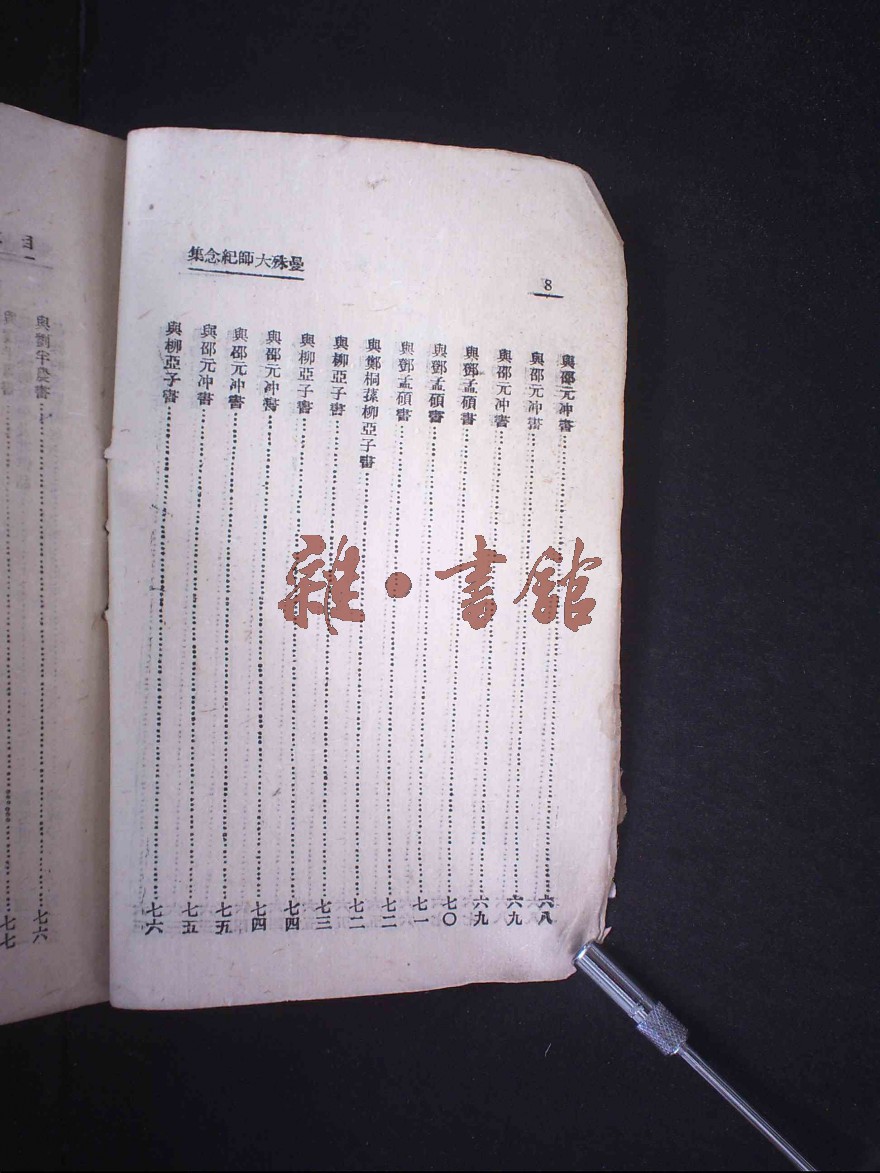 8
曼殊大師紀念集
與邵元冲書……六八
與邵元冲書……六九
與邵元冲書……六九
與鄧孟碩書……七〇
與鄧孟碩書……七一
與鄧孟碩書……七二
與鄭桐蓀柳亞子書……七二
與柳亞子書……七三
與柳亞子書……七四
與邵元冲書……七四
與邵元冲書……七五
與邵元冲書……七五
與柳亞子書……七六
目
與劉半農書……七六
書……七七
雜·書館